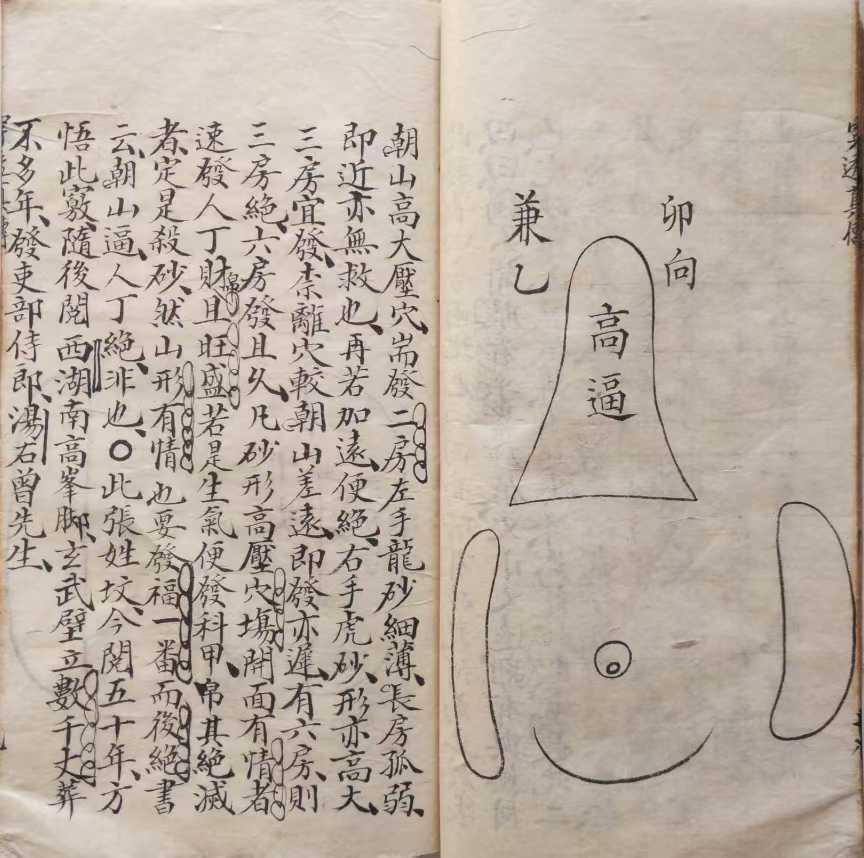 卯向
高逼
兼乙
朝山高大壓穴、耑發二房左手龍砂細薄、長房孤弱、
即近亦無救也、再若加遠便絕、右手虎砂、形亦高大、
三房宜發、柰離穴較朝山差遠、即發亦遲、有六房、則
三房絕、六房發且久、凡砂形高壓穴塲、開面有情者
速發人丁財且旺盛、若是生氣便發科甲、帛其絕滅
者、定是殺砂、然山形有情也要發福一番而後絕書
云、朝山逼、人丁絕、非也、○此張姓坟、今閱五十年、方
悟此竅、隨後閱西湖南高峯脚、玄武壁立數千丈葬
不多年、發吏部侍郎、湯右曾先生、